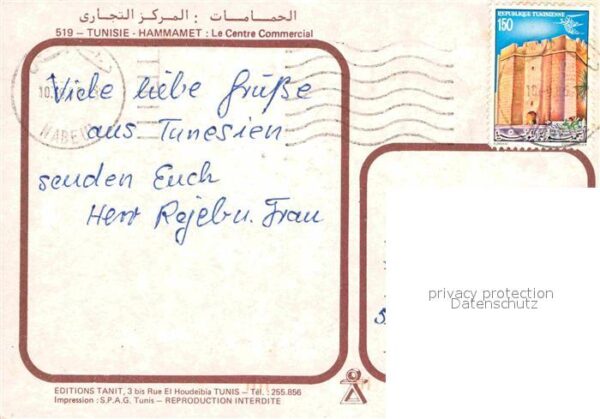 الحمامات : المركز التجاري
519 – TUNISIE - HAMMAMET : Le Centre Commercial
REPUBLIQUE TUNISIENNE
150
NABEUL
Viele liebe Grüße
aus Tunesien
senden Euch
Herr Rajeb u. Frau
privacy protection
Datenschutz
EDITIONS TANIT, 3 bis Rue El Houdeibia TUNIS – Tél. : 255.856
Impression : S.P.A.G. Tunis – REPRODUCTION INTERDITE